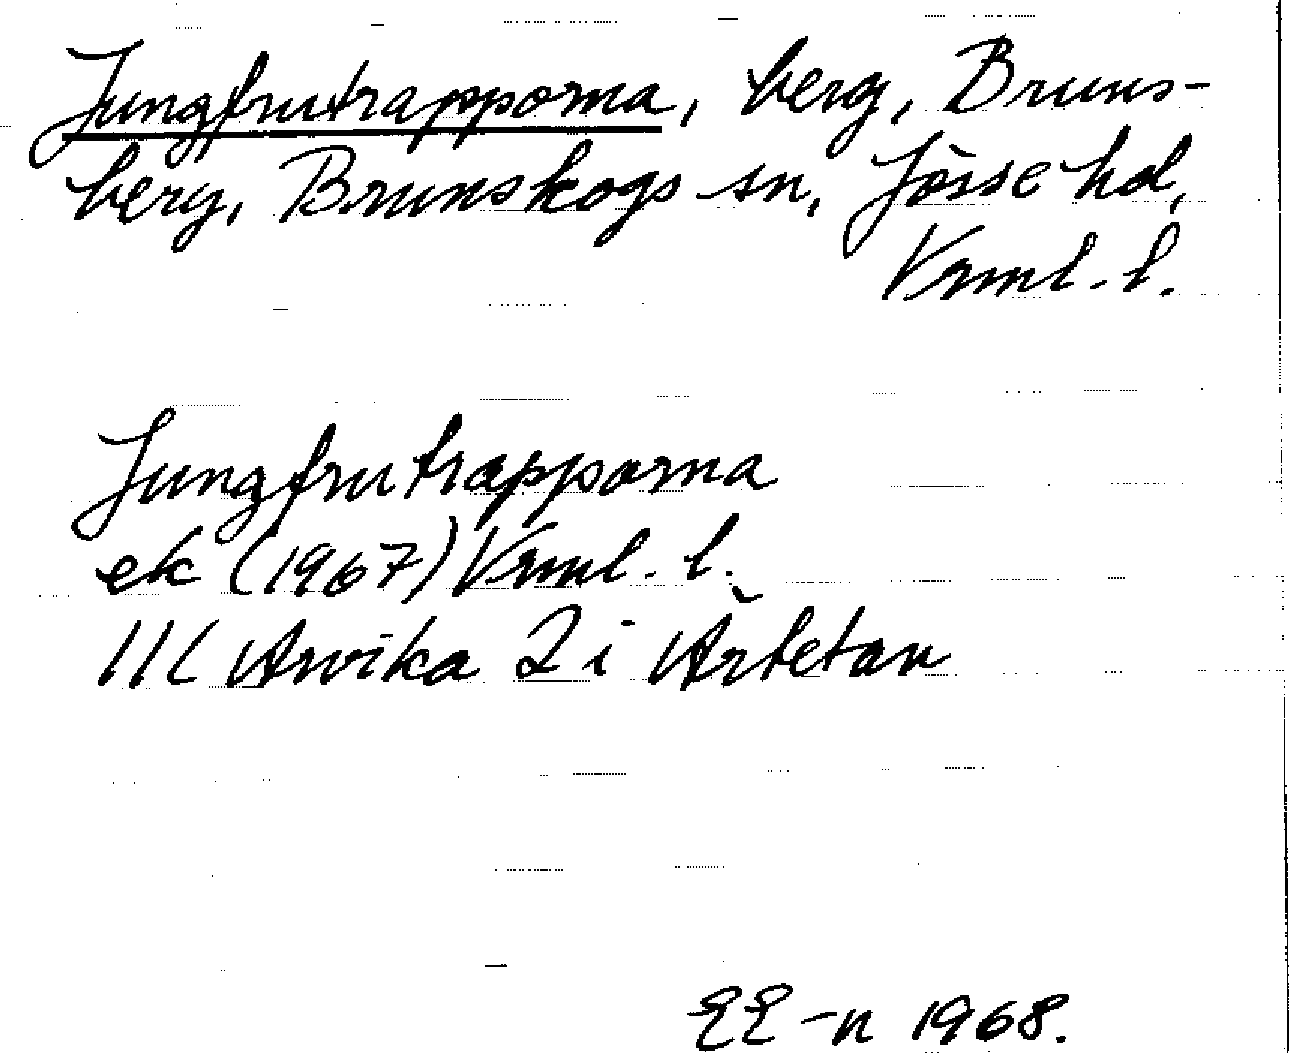 Jungfrutrapporna, berg, Bruns-
berg, Brunskogs sn, Jösse hd,
Vrml. l.
Jungfrutrapporna
ek (1967) Vrml. l.
11C Arvika 2 i Årtetan
EE-n 1968.